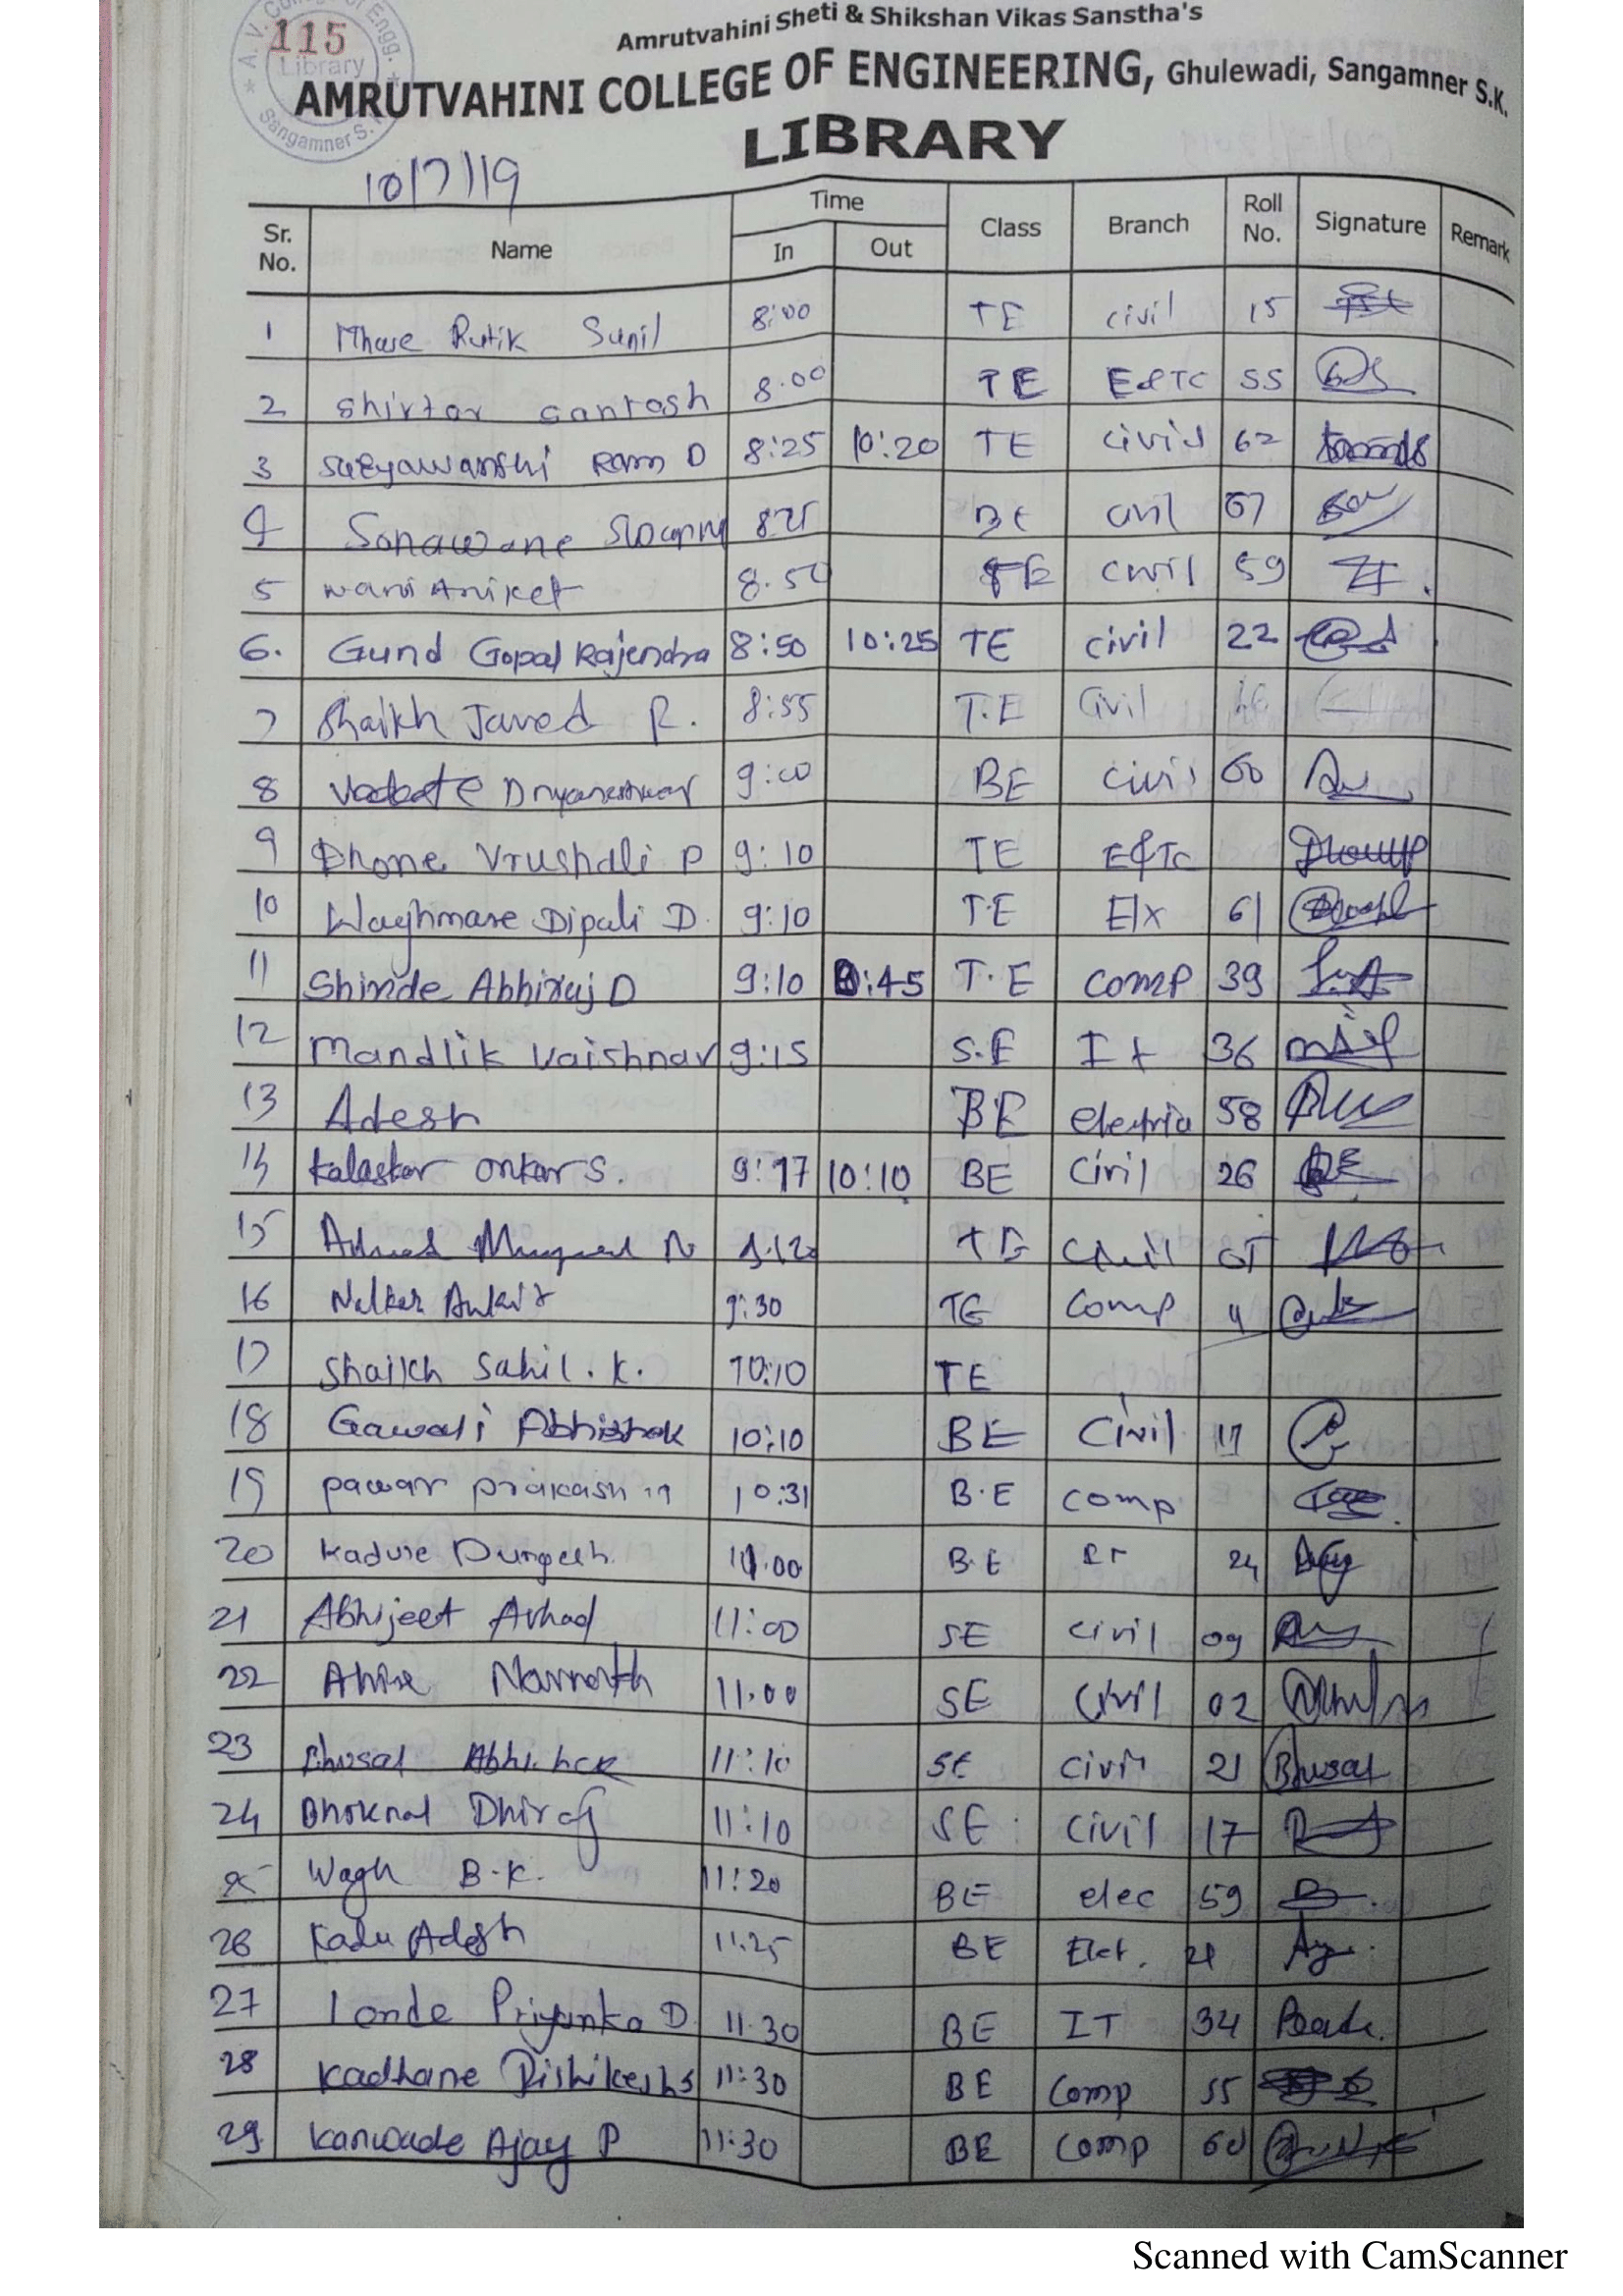 A. V. College of Engg.
115
Library
Sangamner S.K.
Amrutvahini Sheti & Shikshan Vikas Sanstha's
AMRUTVAHINI COLLEGE OF ENGINEERING, Ghulewadi, Sangamner S.K.
LIBRARY
10/7/19
Sr. No. Name Time In Out Class Branch Roll No. Signature Remark
1 Rutik Sunil 8:00 TE civil 15
2 Shirtar Santosh 8.00 TE E&TC 55
3 Suryawanshi Ram D 8:25 10:20 TE civil 62
4 Sonawane 825 BE civil 67
5 Wani Aniket 8.50 TE civil 59
6. Gund Gopal Rajendra 8:50 10:25 TE civil 22
7 Shaikh Javed R. 8:55 T.E Civil
8 Dnyaneshwar 9:00 BE civil 60
9 Dhone Vrushali P 9:10 TE E&TC
10 Waghmare Dipali D. 9:10 T.E E/x 61
11 Shinde Abhiraj D 9:10 :45 T.E comp 39
12 Mandlik Vaishnav 9:15 S.E It 36
13 Adesh BE electrica 58
14 Kalaskar Onkar S. 9:17 10:10 BE Civil 26
15 N TE Civil
16 Nalkar Ankit 9:30 TE Comp
17 Shaikh Sahil. K. 10:10 TE
18 Gawali Abhishek 10:10 BE Civil 17
19 pawar prakash 10:31 B.E comp
20 Durgesh 11.00 B.E 24
21 Abhijeet Avhad 11:00 SE civil 09
22 Ahire Navnath 11.00 SE Civil 02
23 Bhusal 11:10 SE civil 21 Bhusal
24 Bhoknal Dhiraj 11:10 SE civil 17
25 Wagh B.K. 11:20 BE elec 59
26 Kadu Adesh 11.25 BE Elet. 21
27 Londe Priyanka D 11.30 BE IT 34
28 Kadhane Rishikesh S 11:30 BE Comp 55
29 Kanwade Ajay P 11:30 BE comp 60
Scanned with CamScanner